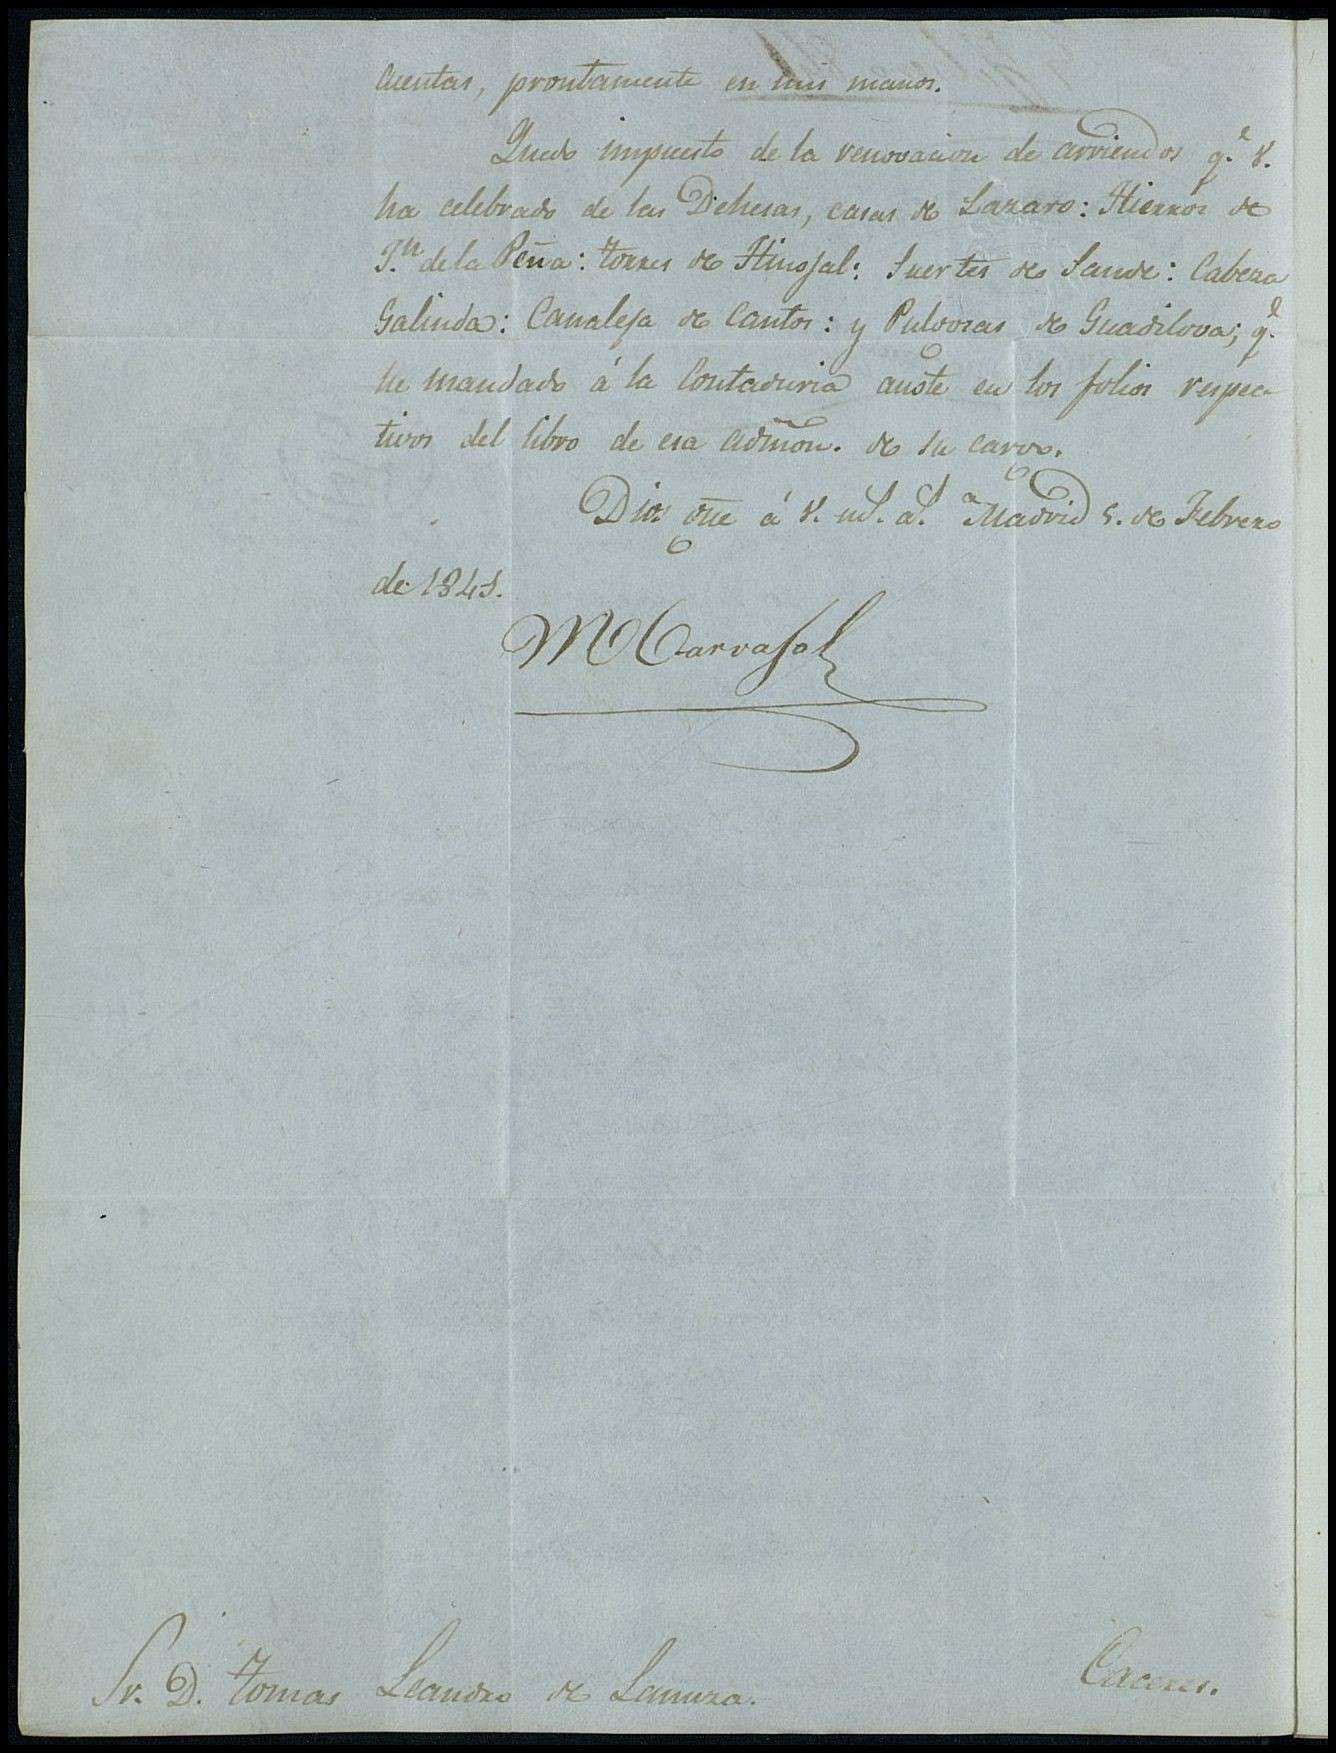 cuentas, prontamente en mis manos.
Quedo impuesto de la renovacion de arriendos q.e V.
ha celebrado de las Dehesas, casas de Lazaro: Hierros de
J.n de la Peña: torres de Hinojal: Suertes de Sande: Cabeza
Galinda: Canaleja de Cantos: y Pulvoras de Guadilova; q.e
he mandado á la Contaduria anote en los folios respec
tivos del libro de esa admon. de su cargo.
Dios gue á V. ms. as. Madrid 5. de Febrero
de 1841.
M Carvajal
Sr. D. Tomas Leandro de Lanuza.
Caceres.